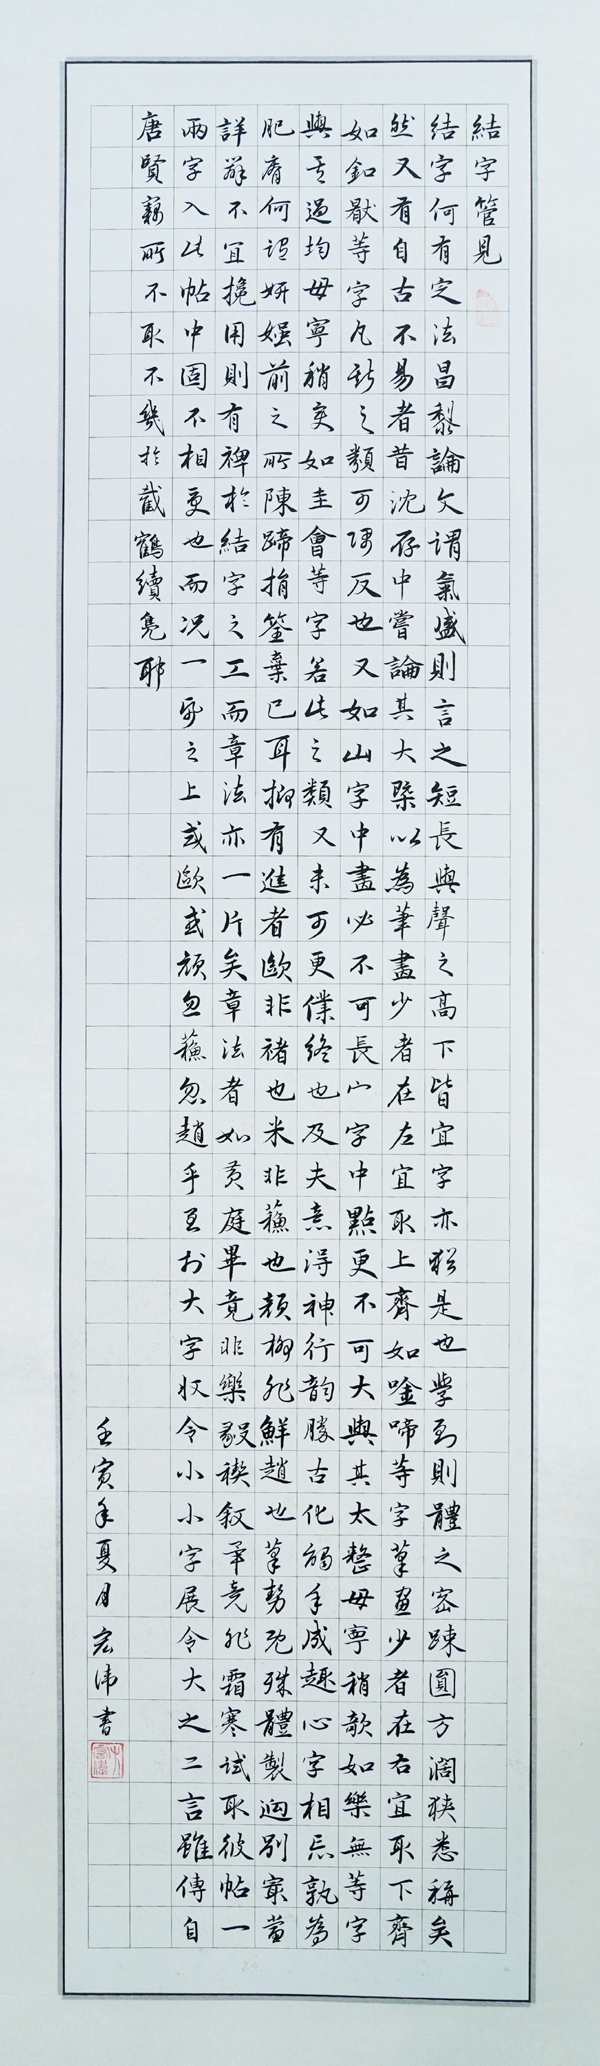 結字管見
結字何有定法昌黎論文謂氣盛則言之短長與聲之高下皆宜字亦猶是也學到則體之密踈圓方濶狹悉稱矣
然又有自古不易者昔沈存中嘗論其大槩以為筆畫少者在左宜取上齊如唫啼等字筆畫少者在右宜取下齊
如釦猒等字凡斯之類可隅反也又如山字中畫必不可長宀字中點更不可大與其太整毋寧稍欹如樂無等字
與其過均毋寧稍奕如圭會等字若此之類又未可更僕終也及夫意得神行韵勝古化觸手成趣心字相忘孰為
肥瘠何謂妍媸前之所陳蹄捐筌棄已耳抑有進者歐非褚也米非蘇也顏柳非鮮趙也筆勢既殊體製迥别寔當
詳辨不宜攙用則有裨於結字之工而章法亦一片矣章法者如黃庭畢竟非樂毅禊叙畢竟非霜寒試取彼帖一
兩字入此帖中固不相更也而况一帋之上或歐或顏忽蘇忽趙乎至於大字収令小小字展令大之二言雖傳自
唐賢竊所不取不幾於截鶴續鳧耶
壬寅年夏月宏偉書